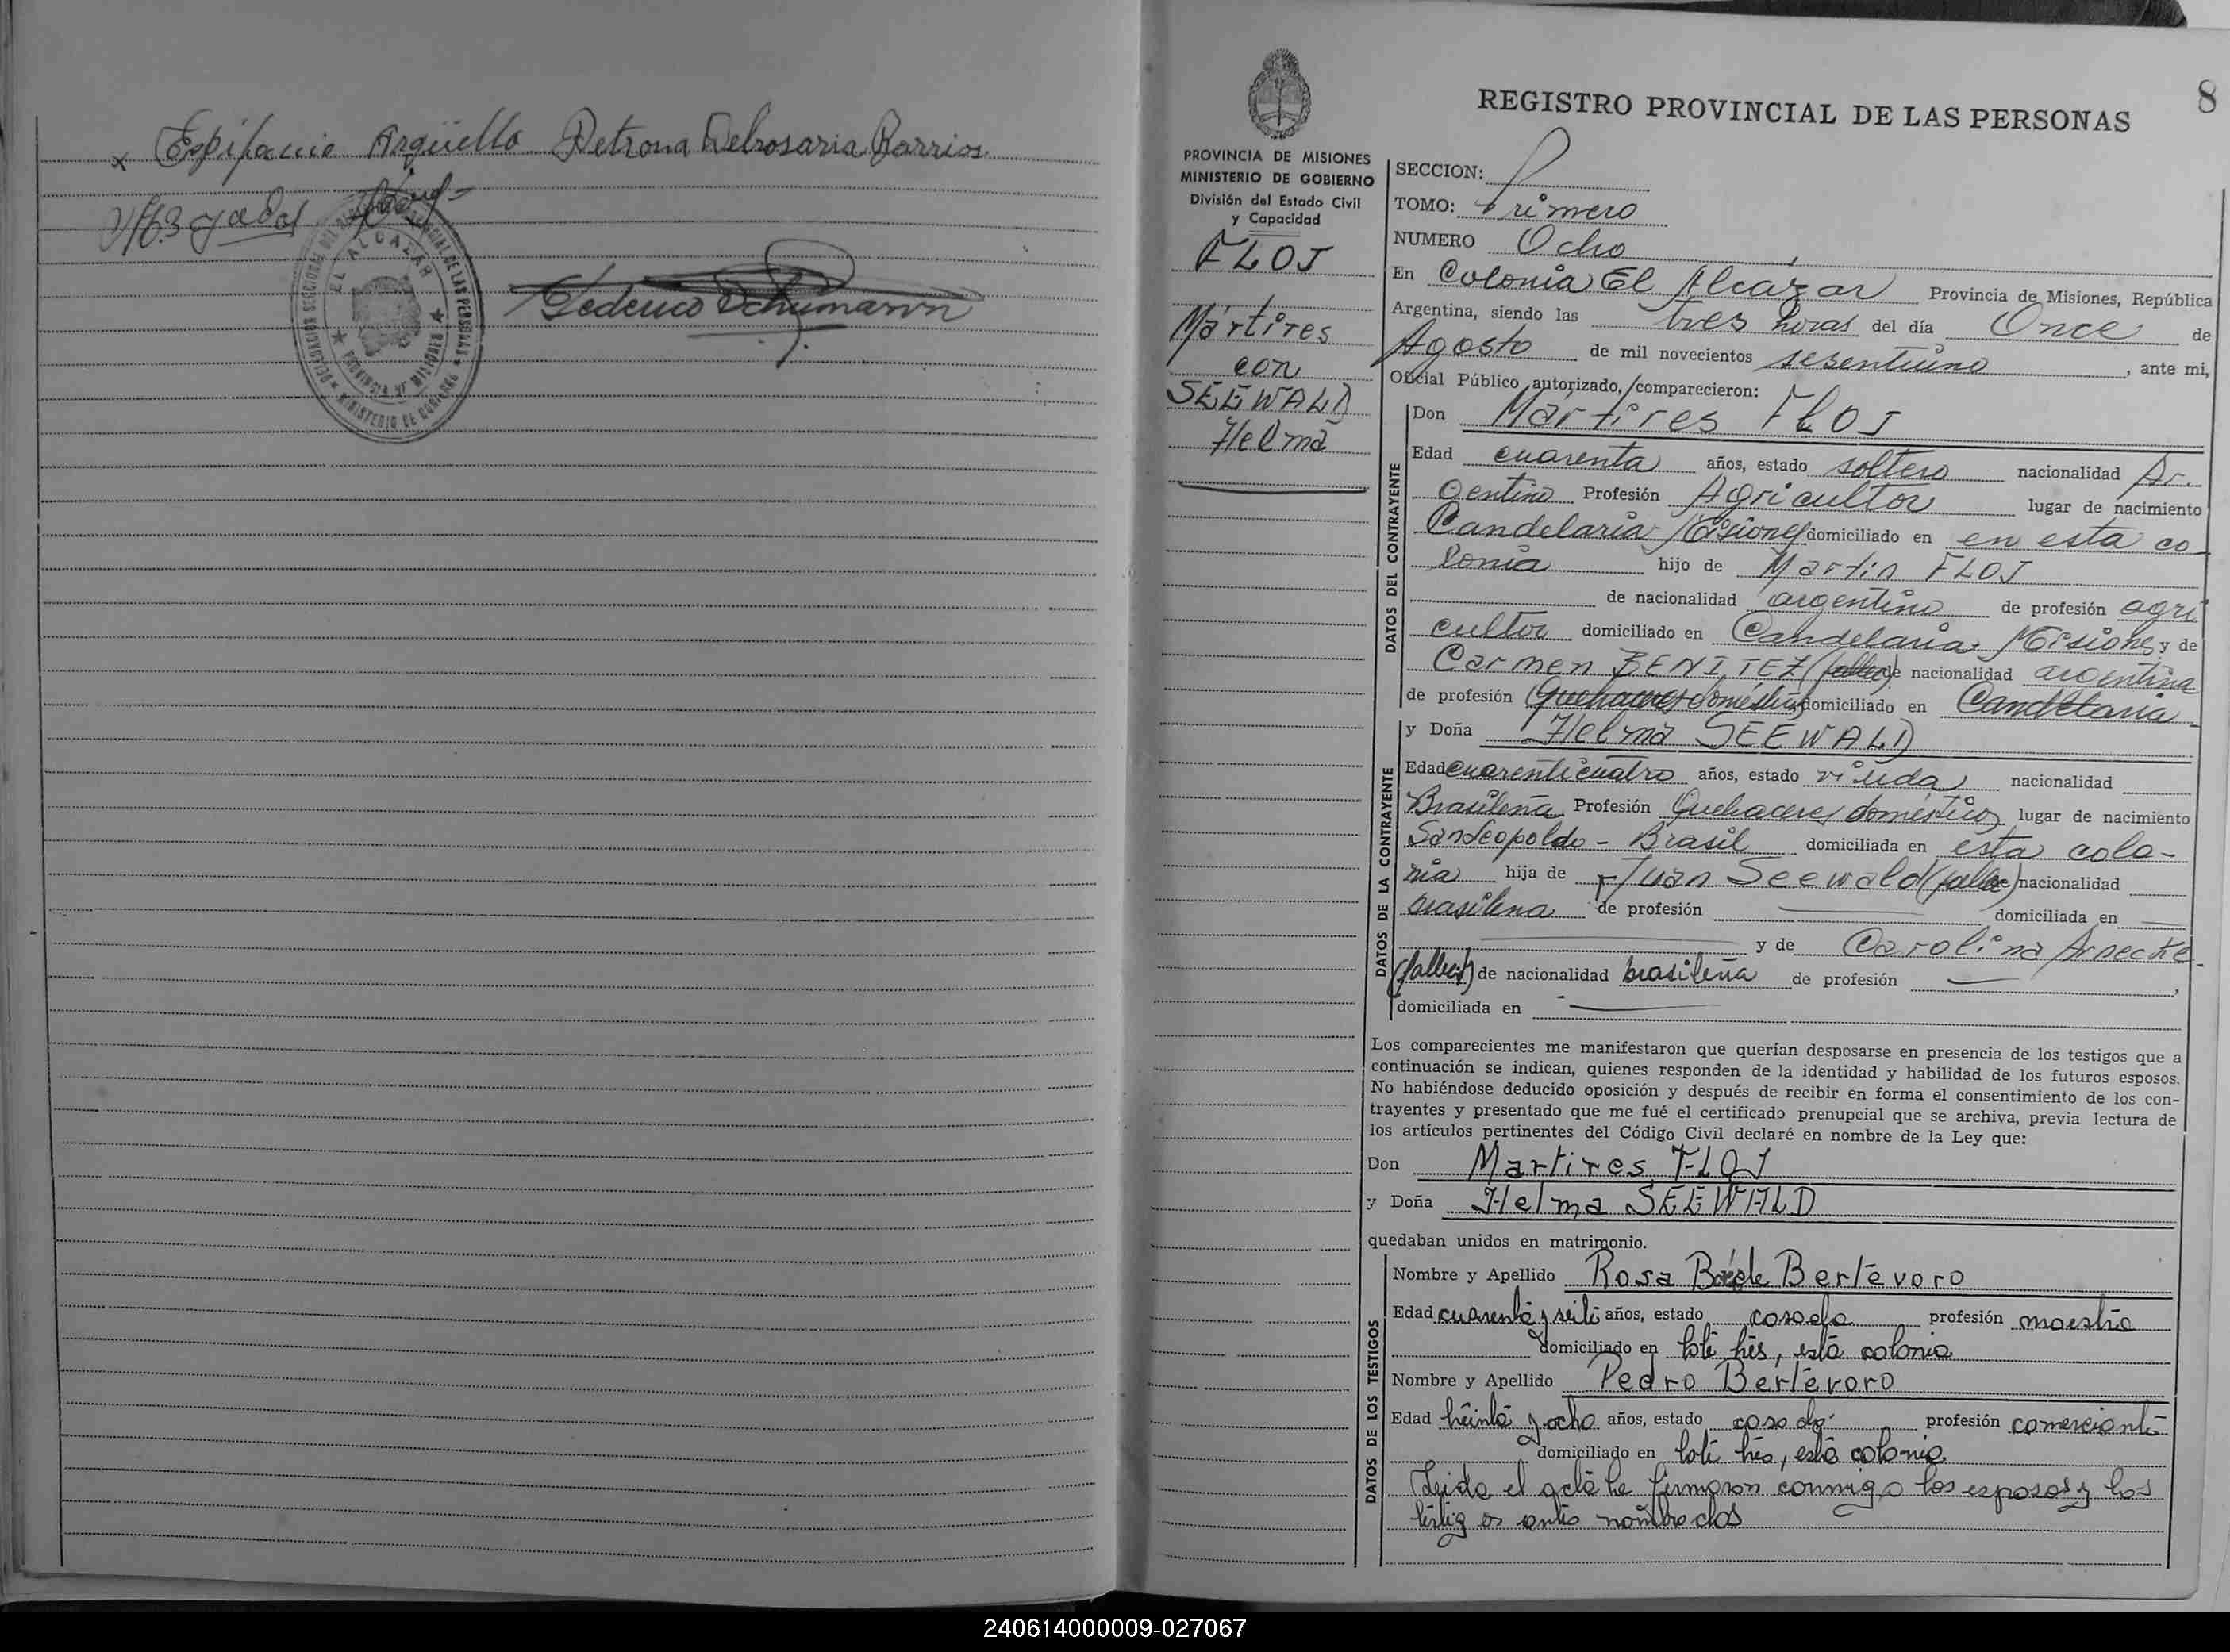 x Epifanio Argüello Petrona Delrosaria Barrios
EL ALCAZAR
PROVINCIA DE MISIONES
MINISTERIO DE GOBIERNO
Federico Schumann
8
REGISTRO PROVINCIAL DE LAS PERSONAS
PROVINCIA DE MISIONES
MINISTERIO DE GOBIERNO
División del Estado Civil
y Capacidad
FLOJ
Mártires
con
SEEWALD
Helma
SECCION:
TOMO: Primero
NUMERO Ocho
En Colonia El Alcazar Provincia de Misiones, República
Argentina, siendo las tres horas del día Once de
Agosto de mil novecientos sesentiuno, ante mi,
Oficial Público autorizado, comparecieron:
DATOS DEL CONTRAYENTE
Don Mártires FLOJ
Edad cuarenta años, estado soltero nacionalidad Ar.
gentino Profesión Agricultor lugar de nacimiento
Candelaria Misiones domiciliado en en esta co
lonia hijo de Martin FLOJ
de nacionalidad argentino de profesión agri
cultor domiciliado en Candelaria Misiones y de
Carmen BENITEZ de nacionalidad argentina
de profesión Quehaceres domésticos domiciliado en Candelaria
DATOS DE LA CONTRAYENTE
y Doña Helma SEEWALD
Edad cuarenticuatro años, estado viuda nacionalidad
Brasileña Profesión Quehaceres domésticos lugar de nacimiento
Sanleopoldo - Brasil domiciliada en esta colo-
nia hija de Juan Seewald nacionalidad
brasilena de profesión domiciliada en
y de Carolina Arnecke
de nacionalidad brasileña de profesión
domiciliada en
Los comparecientes me manifestaron que querían desposarse en presencia de los testigos que a
continuación se indican, quienes responden de la identidad y habilidad de los futuros esposos.
No habiéndose deducido oposición y después de recibir en forma el consentimiento de los con-
trayentes y presentado que me fué el certificado prenupcial que se archiva, previa lectura de
los artículos pertinentes del Código Civil declaré en nombre de la Ley que:
Don Martires FLOJ
y Doña Helma SEEWALD
quedaban unidos en matrimonio.
DATOS DE LOS TESTIGOS
Nombre y Apellido Rosa Berlevoro
Edad cuarenta y seite años, estado casada profesión maestra
domiciliado en lote tres, esta colonia
Nombre y Apellido Pedro Berlevoro
Edad treinta y ocho años, estado casado profesión comerciante
domiciliado en lote tres, esta colonia
Leida el acta la firmaron conmigo los esposos y los
testigos antes nombrados
240614000009-027067